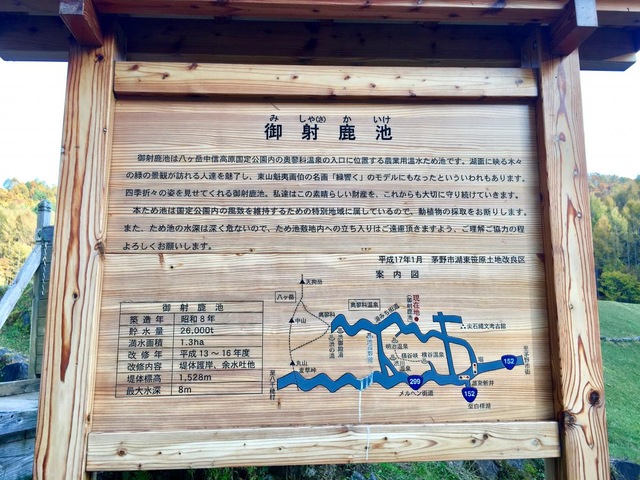 みしゃ(さ)かいけ
御射鹿池
御射鹿池は八ヶ岳中信高原国定公園内の奥蓼科温泉の入口に位置する農業用温水ため池です。湖面に映る木々
の緑の景観が訪れる人達を魅了し、東山魁夷画伯の名画「緑響く」のモデルにもなったといういわれもあります。
四季折々の姿を見せてくれる御射鹿池。私達はこの素晴らしい財産を、これからも大切に守り続けていきます。
本ため池は国定公園内の風致を維持するための特別地域に属しているので、動植物の採取をお断りします。
また、ため池の水深は深く危ないので、ため池敷地内への立ち入りはご遠慮頂きますよう、ご理解ご協力の程
よろしくお願いします。
平成17年1月 茅野市湖東笹原土地改良区
案内図
御射鹿池
築造年 昭和8年
貯水量 26,000t
満水面積 1.3ha
改修年 平成13~16年度
改修内容 堤体護岸、余水吐他
堤体標高 1,528m
最大水深 8m
八ヶ岳
天狗岳
中山
丸山
麦草峠
奥蓼科温泉
奥蓼科
渋の湯
渋御殿湯
湯みち街道
御射鹿池
現在地
明治温泉
横谷峡
横谷温泉
渋川温泉
尖石縄文考古館
堀
湖東新井
299
メルヘン街道
152
152
至白樺湖
至茅野市街
至八千穂村